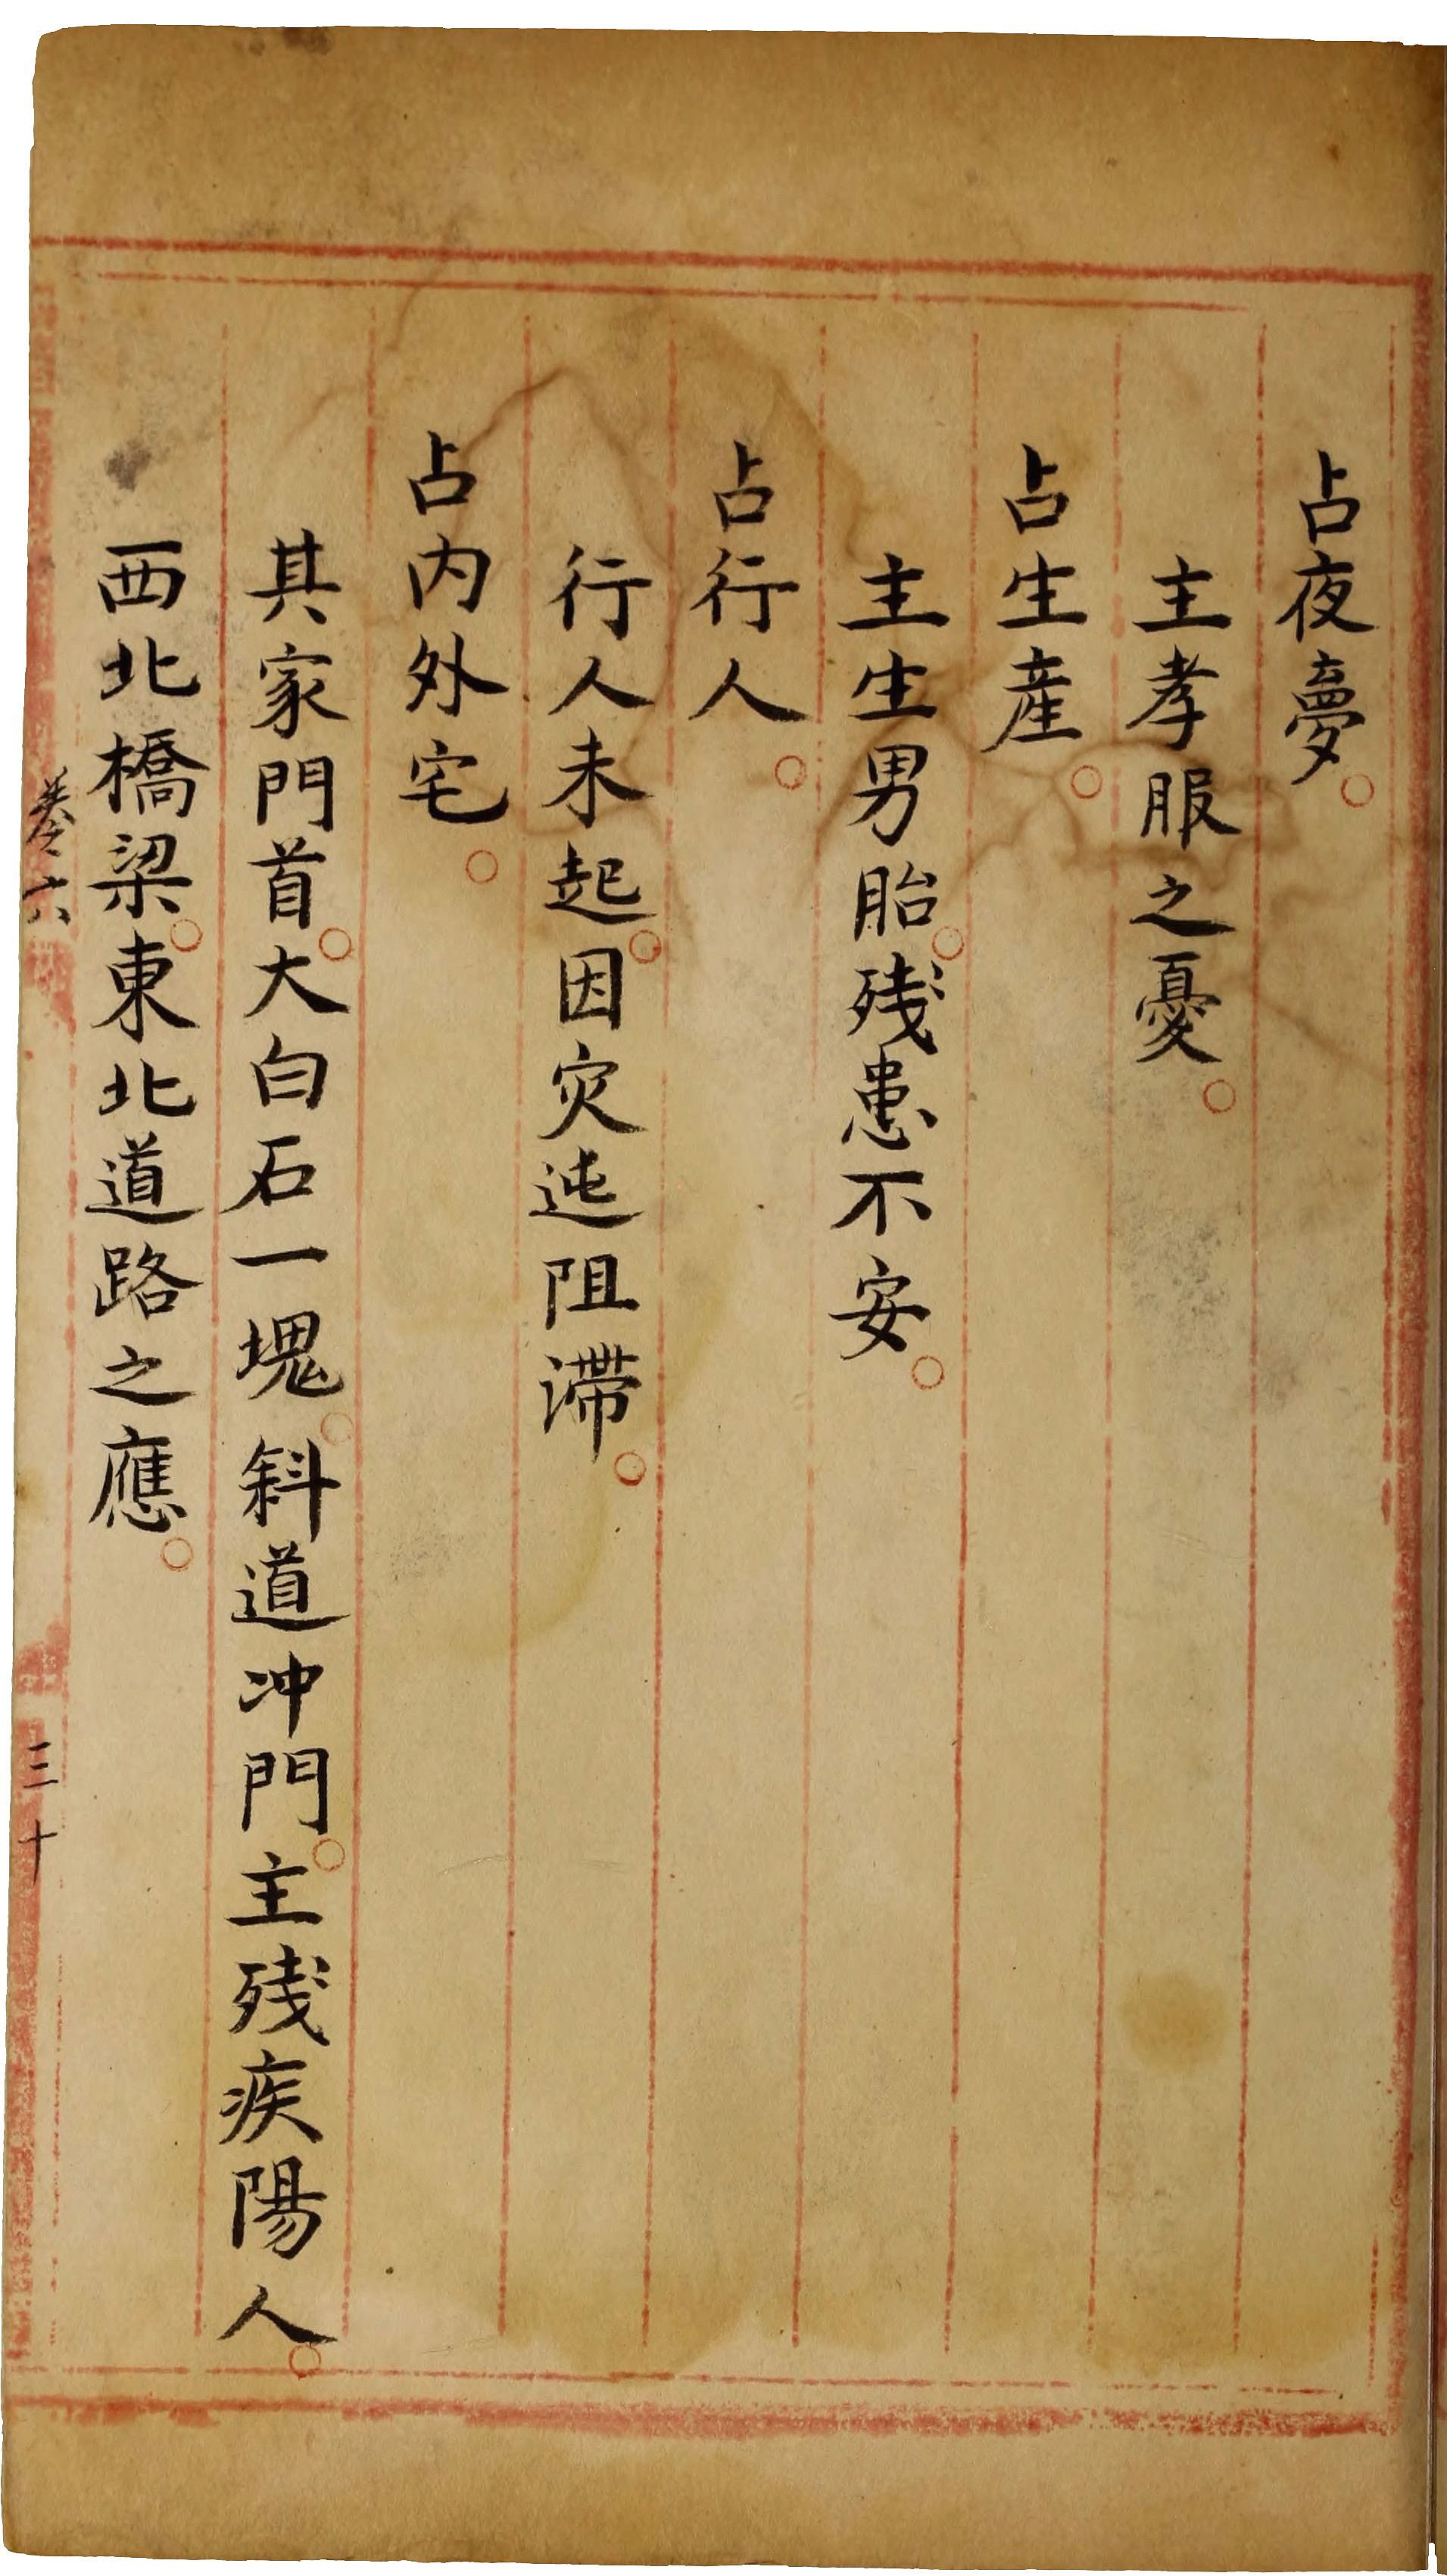 占夜夢○
主孝服之憂○
占生産○
主生男胎○残患不安○
占行人○
行人未起○因灾迍阻滯○
占内外宅○
其家門首○大白石一塊○斜道冲門○主残疾陽人○
西北橋梁○東北道路之應○
卷六
三十